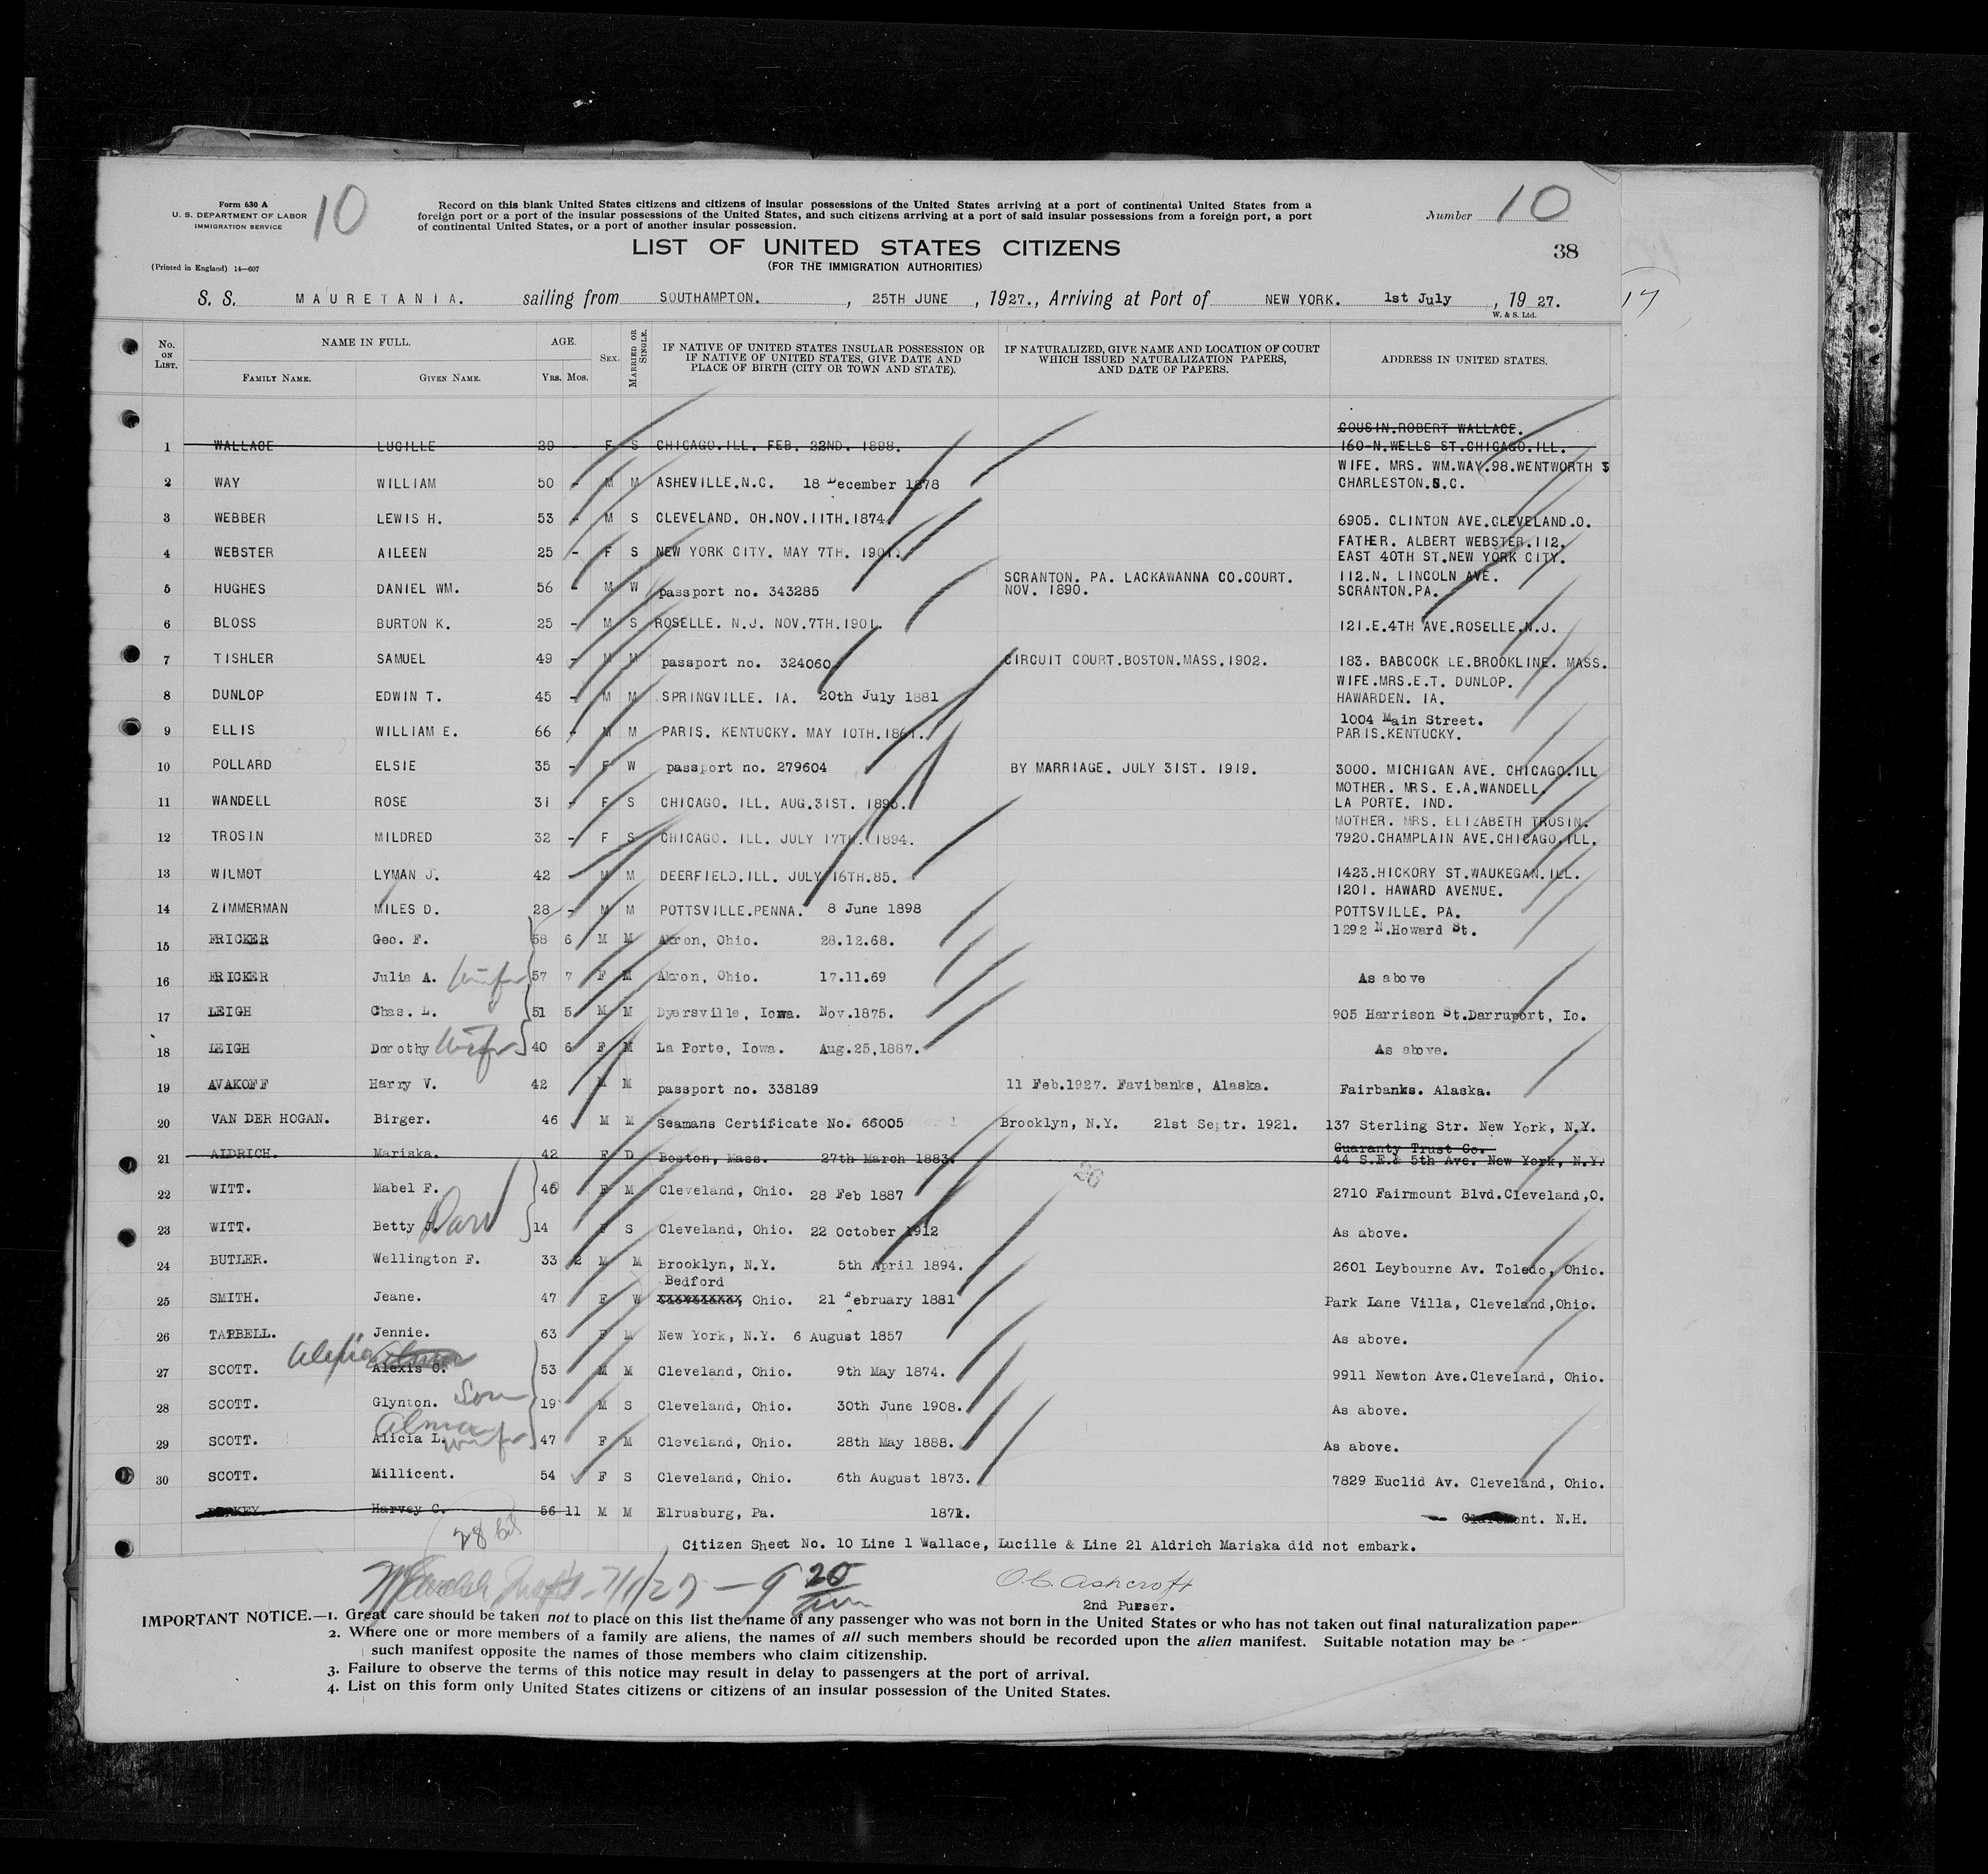 Form 630 A
U. S. DEPARTMENT OF LABOR
IMMIGRATION SERVICE
10
Record on this blank United States citizens and citizens of insular possessions of the United States arriving at a port of continental United States from a
foreign port or a port of the insular possessions of the United States, and such citizens arriving at a port of said insular possessions from a foreign port, a port
of continental United States, or a port of another insular possession.
Number 10
LIST OF UNITED STATES CITIZENS
(FOR THE IMMIGRATION AUTHORITIES)
38
(Printed in England) 14—607
S. S. MAURETANIA. sailing from SOUTHAMPTON. , 25TH JUNE , 1927., Arriving at Port of NEW YORK. 1st July , 19 27.
W. & S. Ltd.
17
No. ON LIST. NAME IN FULL. AGE. SEX. MARRIED OR SINGLE. IF NATIVE OF UNITED STATES INSULAR POSSESSION OR IF NATIVE OF UNITED STATES, GIVE DATE AND PLACE OF BIRTH (CITY OR TOWN AND STATE). IF NATURALIZED, GIVE NAME AND LOCATION OF COURT WHICH ISSUED NATURALIZATION PAPERS, AND DATE OF PAPERS. ADDRESS IN UNITED STATES.
FAMILY NAME. GIVEN NAME. YRS. MOS.
COUSIN.ROBERT WALLACE.
1 WALLACE LUCILLE 29 - F S CHICAGO.ILL. FEB. 22ND. 1898. 160-N.WELLS ST.CHICAGO.ILL.
WIFE. MRS. WM.WAY.98.WENTWORTH S
2 WAY WILLIAM 50 - M M ASHEVILLE.N.C. 18 December 1878 CHARLESTON.S.C.
3 WEBBER LEWIS H. 53 - M S CLEVELAND. OH.NOV.11TH.1874. 6905. CLINTON AVE.CLEVELAND.O.
FATHER. ALBERT WEBSTER.112.
4 WEBSTER AILEEN 25 - F S NEW YORK CITY. MAY 7TH. 1901. EAST 40TH ST.NEW YORK CITY.
SCRANTON. PA. LACKAWANNA CO.COURT. 112.N. LINCOLN AVE.
5 HUGHES DANIEL WM. 56 - M W passport no. 343285 NOV. 1890. SCRANTON.PA.
6 BLOSS BURTON K. 25 - M S ROSELLE. N.J. NOV.7TH.1901. 121.E.4TH AVE.ROSELLE.N.J.
7 TISHLER SAMUEL 49 - M M passport no. 324060 CIRCUIT COURT.BOSTON.MASS.1902. 183. BABCOCK LE.BROOKLINE. MASS.
WIFE.MRS.E.T. DUNLOP.
8 DUNLOP EDWIN T. 45 - M M SPRINGVILLE. IA. 20th July 1881 HAWARDEN. IA.
1004 Main Street.
9 ELLIS WILLIAM E. 66 - M M PARIS. KENTUCKY. MAY 10TH.1861. PARIS.KENTUCKY.
10 POLLARD ELSIE 35 - F W passport no. 279604 BY MARRIAGE. JULY 31ST. 1919. 3000. MICHIGAN AVE. CHICAGO.ILL
MOTHER. MRS. E.A.WANDELL.
11 WANDELL ROSE 31 - F S CHICAGO. ILL. AUG.31ST. 1895. LA PORTE. IND.
MOTHER. MRS. ELIZABETH TROSIN.
12 TROSIN MILDRED 32 - F S CHICAGO. ILL. JULY 17TH. 1894. 7920.CHAMPLAIN AVE.CHICAGO.ILL.
13 WILMOT LYMAN J. 42 - M M DEERFIELD.ILL. JULY 16TH.85. 1423.HICKORY ST.WAUKEGAN.ILL.
1201. HAWARD AVENUE.
14 ZIMMERMAN MILES D. 28 - M M POTTSVILLE.PENNA. 8 June 1898 POTTSVILLE. PA.
15 FRICKER Geo. F. 58 6 M M Akron, Ohio. 28.12.68. 1292 N.Howard St.
16 FRICKER Julia A. Wife 57 7 F M Akron, Ohio. 17.11.69 As above
17 LEIGH Chas. L. 51 5 M M Dyersville, Iowa. Nov.1875. 905 Harrison St.Darruport, Io.
18 LEIGH Dorothy Wife 40 6 F M La Porte, Iowa. Aug.25,1887. As above.
19 AVAKOFF Harry V. 42 M M passport no. 338189 11 Feb.1927. Favibanks, Alaska. Fairbanks. Alaska.
20 VAN DER HOGAN. Birger. 46 M M Seamans Certificate No. 66005 Brooklyn, N.Y. 21st Septr. 1921. 137 Sterling Str. New York, N.Y.
Guaranty Trust Co.
21 ALDRICH. Mariska. 42 F D Boston, Mass. 27th March 1883. 44 S.E.& 5th Ave. New York, N.Y.
26
22 WITT. Mabel F. 40 F M Cleveland, Ohio. 28 Feb 1887 2710 Fairmount Blvd.Cleveland,O.
23 WITT. Betty J. Dau 14 F S Cleveland, Ohio. 22 October 1912 As above.
24 BUTLER. Wellington F. 33 2 M M Brooklyn, N.Y. 5th April 1894. 2601 Leybourne Av. Toledo, Ohio.
Bedford
25 SMITH. Jeane. 47 F W Cleveland, Ohio. 21 February 1881 Park Lane Villa, Cleveland,Ohio.
26 TARBELL. Jennie. 63 F M New York, N.Y. 6 August 1857 As above.
27 SCOTT. Alexis O. 53 M M Cleveland, Ohio. 9th May 1874. 9911 Newton Ave.Cleveland, Ohio.
28 SCOTT. Glynton. Son 19 M S Cleveland, Ohio. 30th June 1908. As above.
Alma
29 SCOTT. Alicia L. wife 47 F M Cleveland, Ohio. 28th May 1888. As above.
30 SCOTT. Millicent. 54 F S Cleveland, Ohio. 6th August 1873. 7829 Euclid Av. Cleveland, Ohio.
Harvey C. 56 11 M M Elrusburg, Pa. 1871. Claremont. N.H.
28
Citizen Sheet No. 10 Line 1 Wallace, Lucille & Line 21 Aldrich Mariska did not embark.
7/1/27 — 9 20
O.C. Ashcroft
2nd Purser.
IMPORTANT NOTICE.—1. Great care should be taken not to place on this list the name of any passenger who was not born in the United States or who has not taken out final naturalization paper
2. Where one or more members of a family are aliens, the names of all such members should be recorded upon the alien manifest. Suitable notation may be
such manifest opposite the names of those members who claim citizenship.
3. Failure to observe the terms of this notice may result in delay to passengers at the port of arrival.
4. List on this form only United States citizens or citizens of an insular possession of the United States.